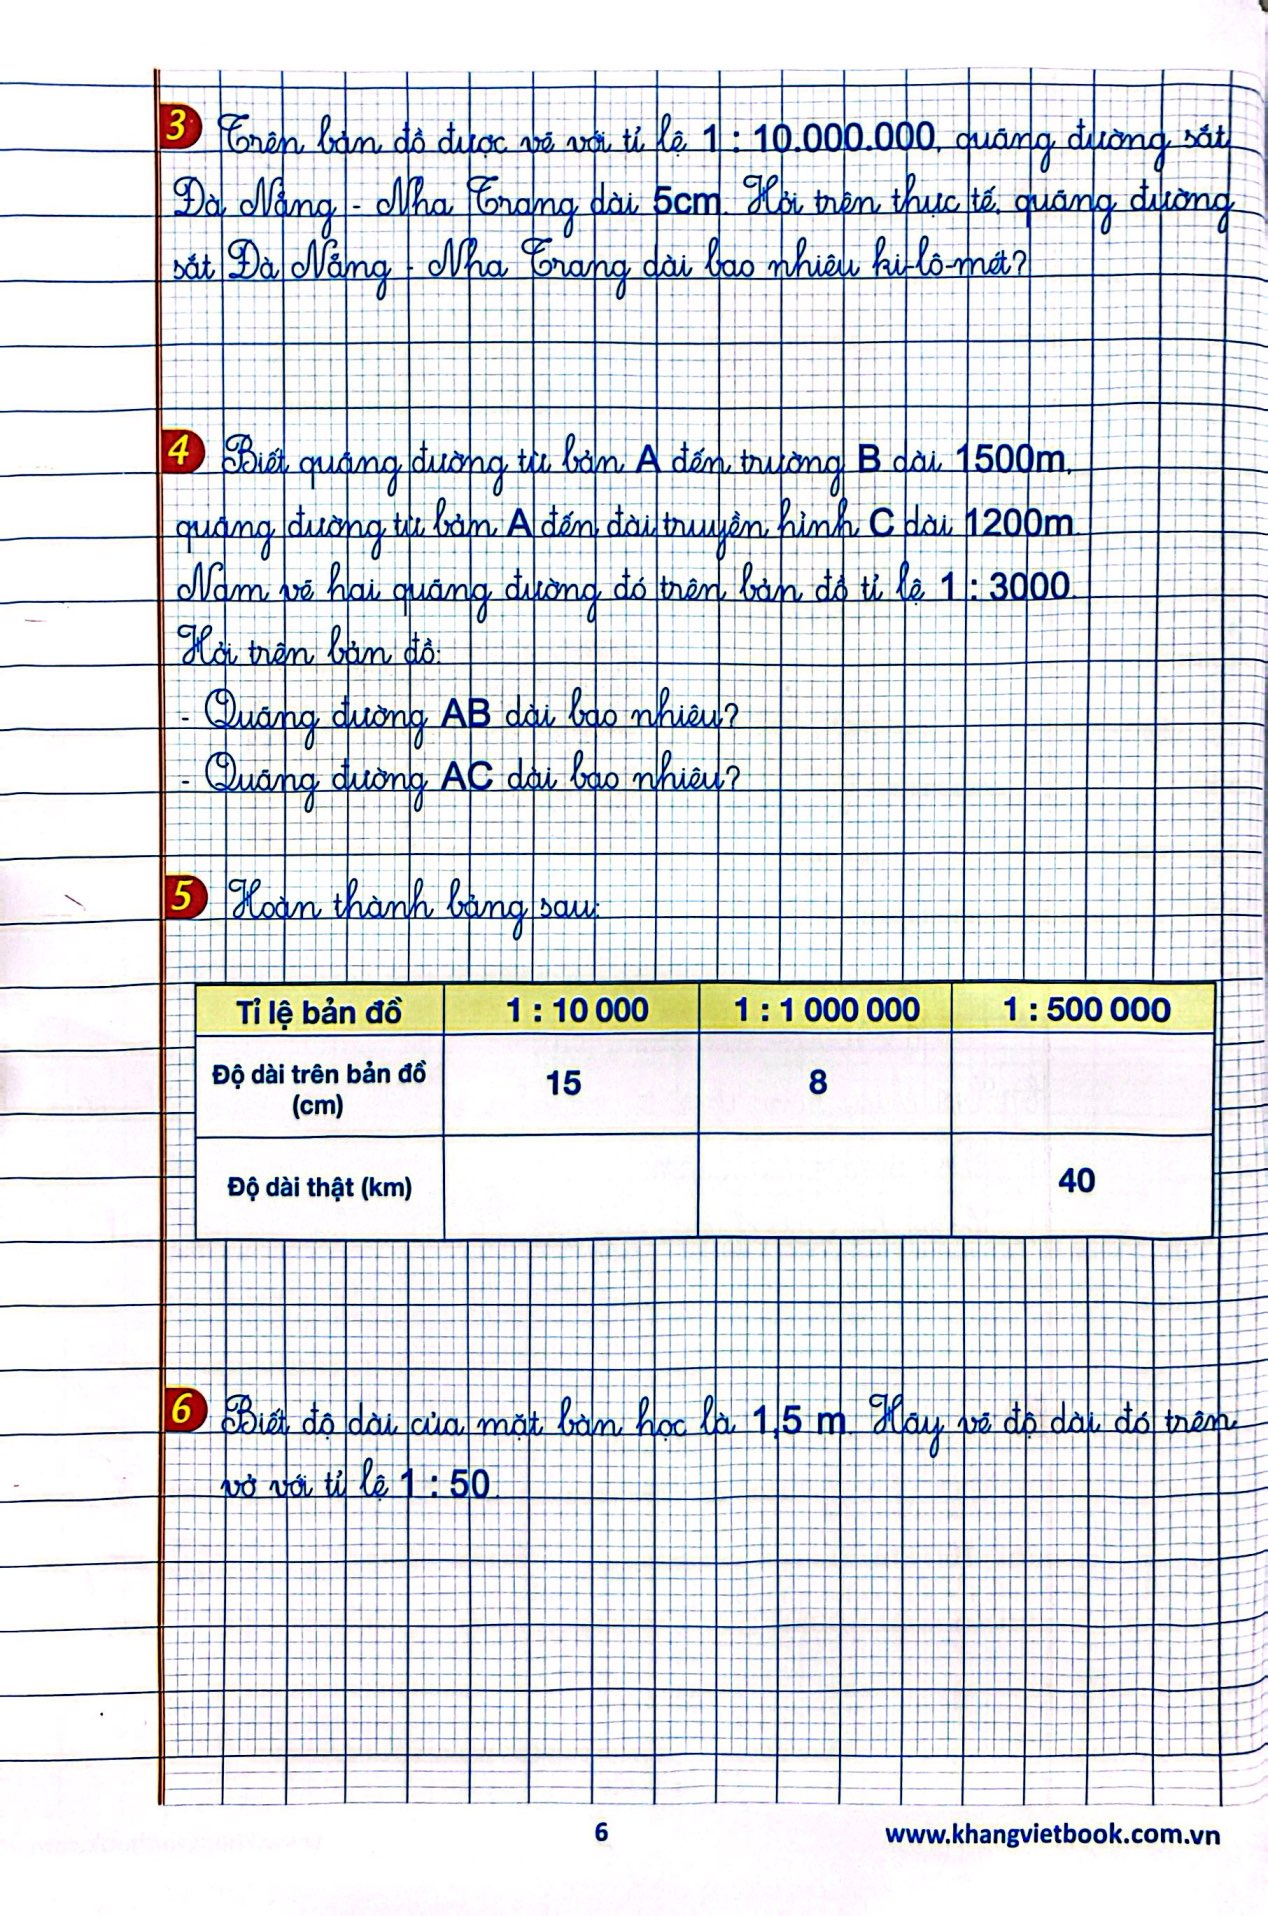 3 Trên bản đồ được vẽ với tỉ lệ 1 : 10.000.000, quãng đường sắt
Đà Nẵng - Nha Trang dài 5cm. Hỏi trên thực tế, quãng đường
sắt Đà Nẵng - Nha Trang dài bao nhiêu ki-lô-mét?
4 Biết quãng đường từ bản A đến trường B dài 1500m,
quãng đường từ bản A đến đài truyền hình C dài 1200m.
Nam vẽ hai quãng đường đó trên bản đồ tỉ lệ 1 : 3000.
Hỏi trên bản đồ:
- Quãng đường AB dài bao nhiêu?
- Quãng đường AC dài bao nhiêu?
5 Hoàn thành bảng sau:
Tỉ lệ bản đồ 1 : 10 000 1 : 1 000 000 1 : 500 000
Độ dài trên bản đồ
(cm) 15 8
Độ dài thật (km) 40
6 Biết độ dài của mặt bàn học là 1,5 m. Hãy vẽ độ dài đó trên
vở với tỉ lệ 1 : 50.
6 www.khangvietbook.com.vn